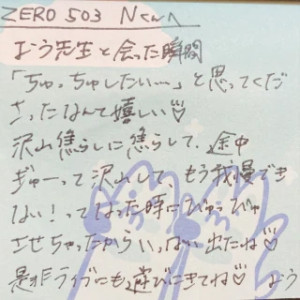 ZERO 503 Nくんへ
なう先生と会った瞬間
「ちゅっちゅしたい…」と思ってくだ
さったなんて嬉しい♡
沢山焦らしに焦らして、途中
ぎゅーって沢山して、もう我慢でき
ない！ってなった時にぴゅっぴゅ
させちゃったからいっぱい出たね♡
是非ライブにも遊びにきてね♡ なう